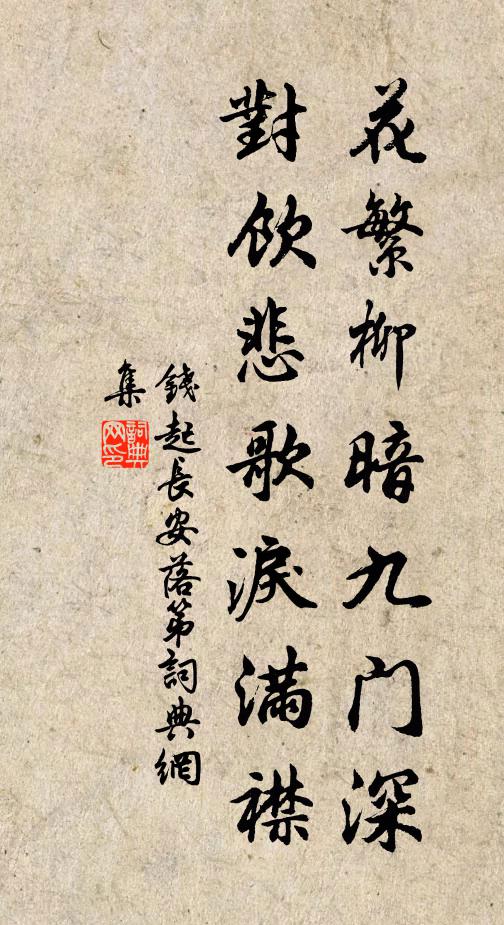 花繁柳暗九门深
對飲悲歌淚滿襟
錢起長安落第詞典網
集
詞典
网印